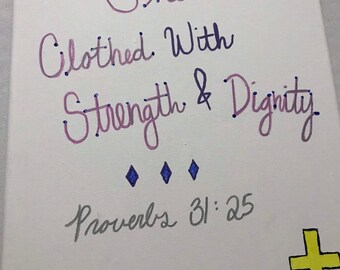 Clothed With
Strength & Dignity
Proverbs 31:25